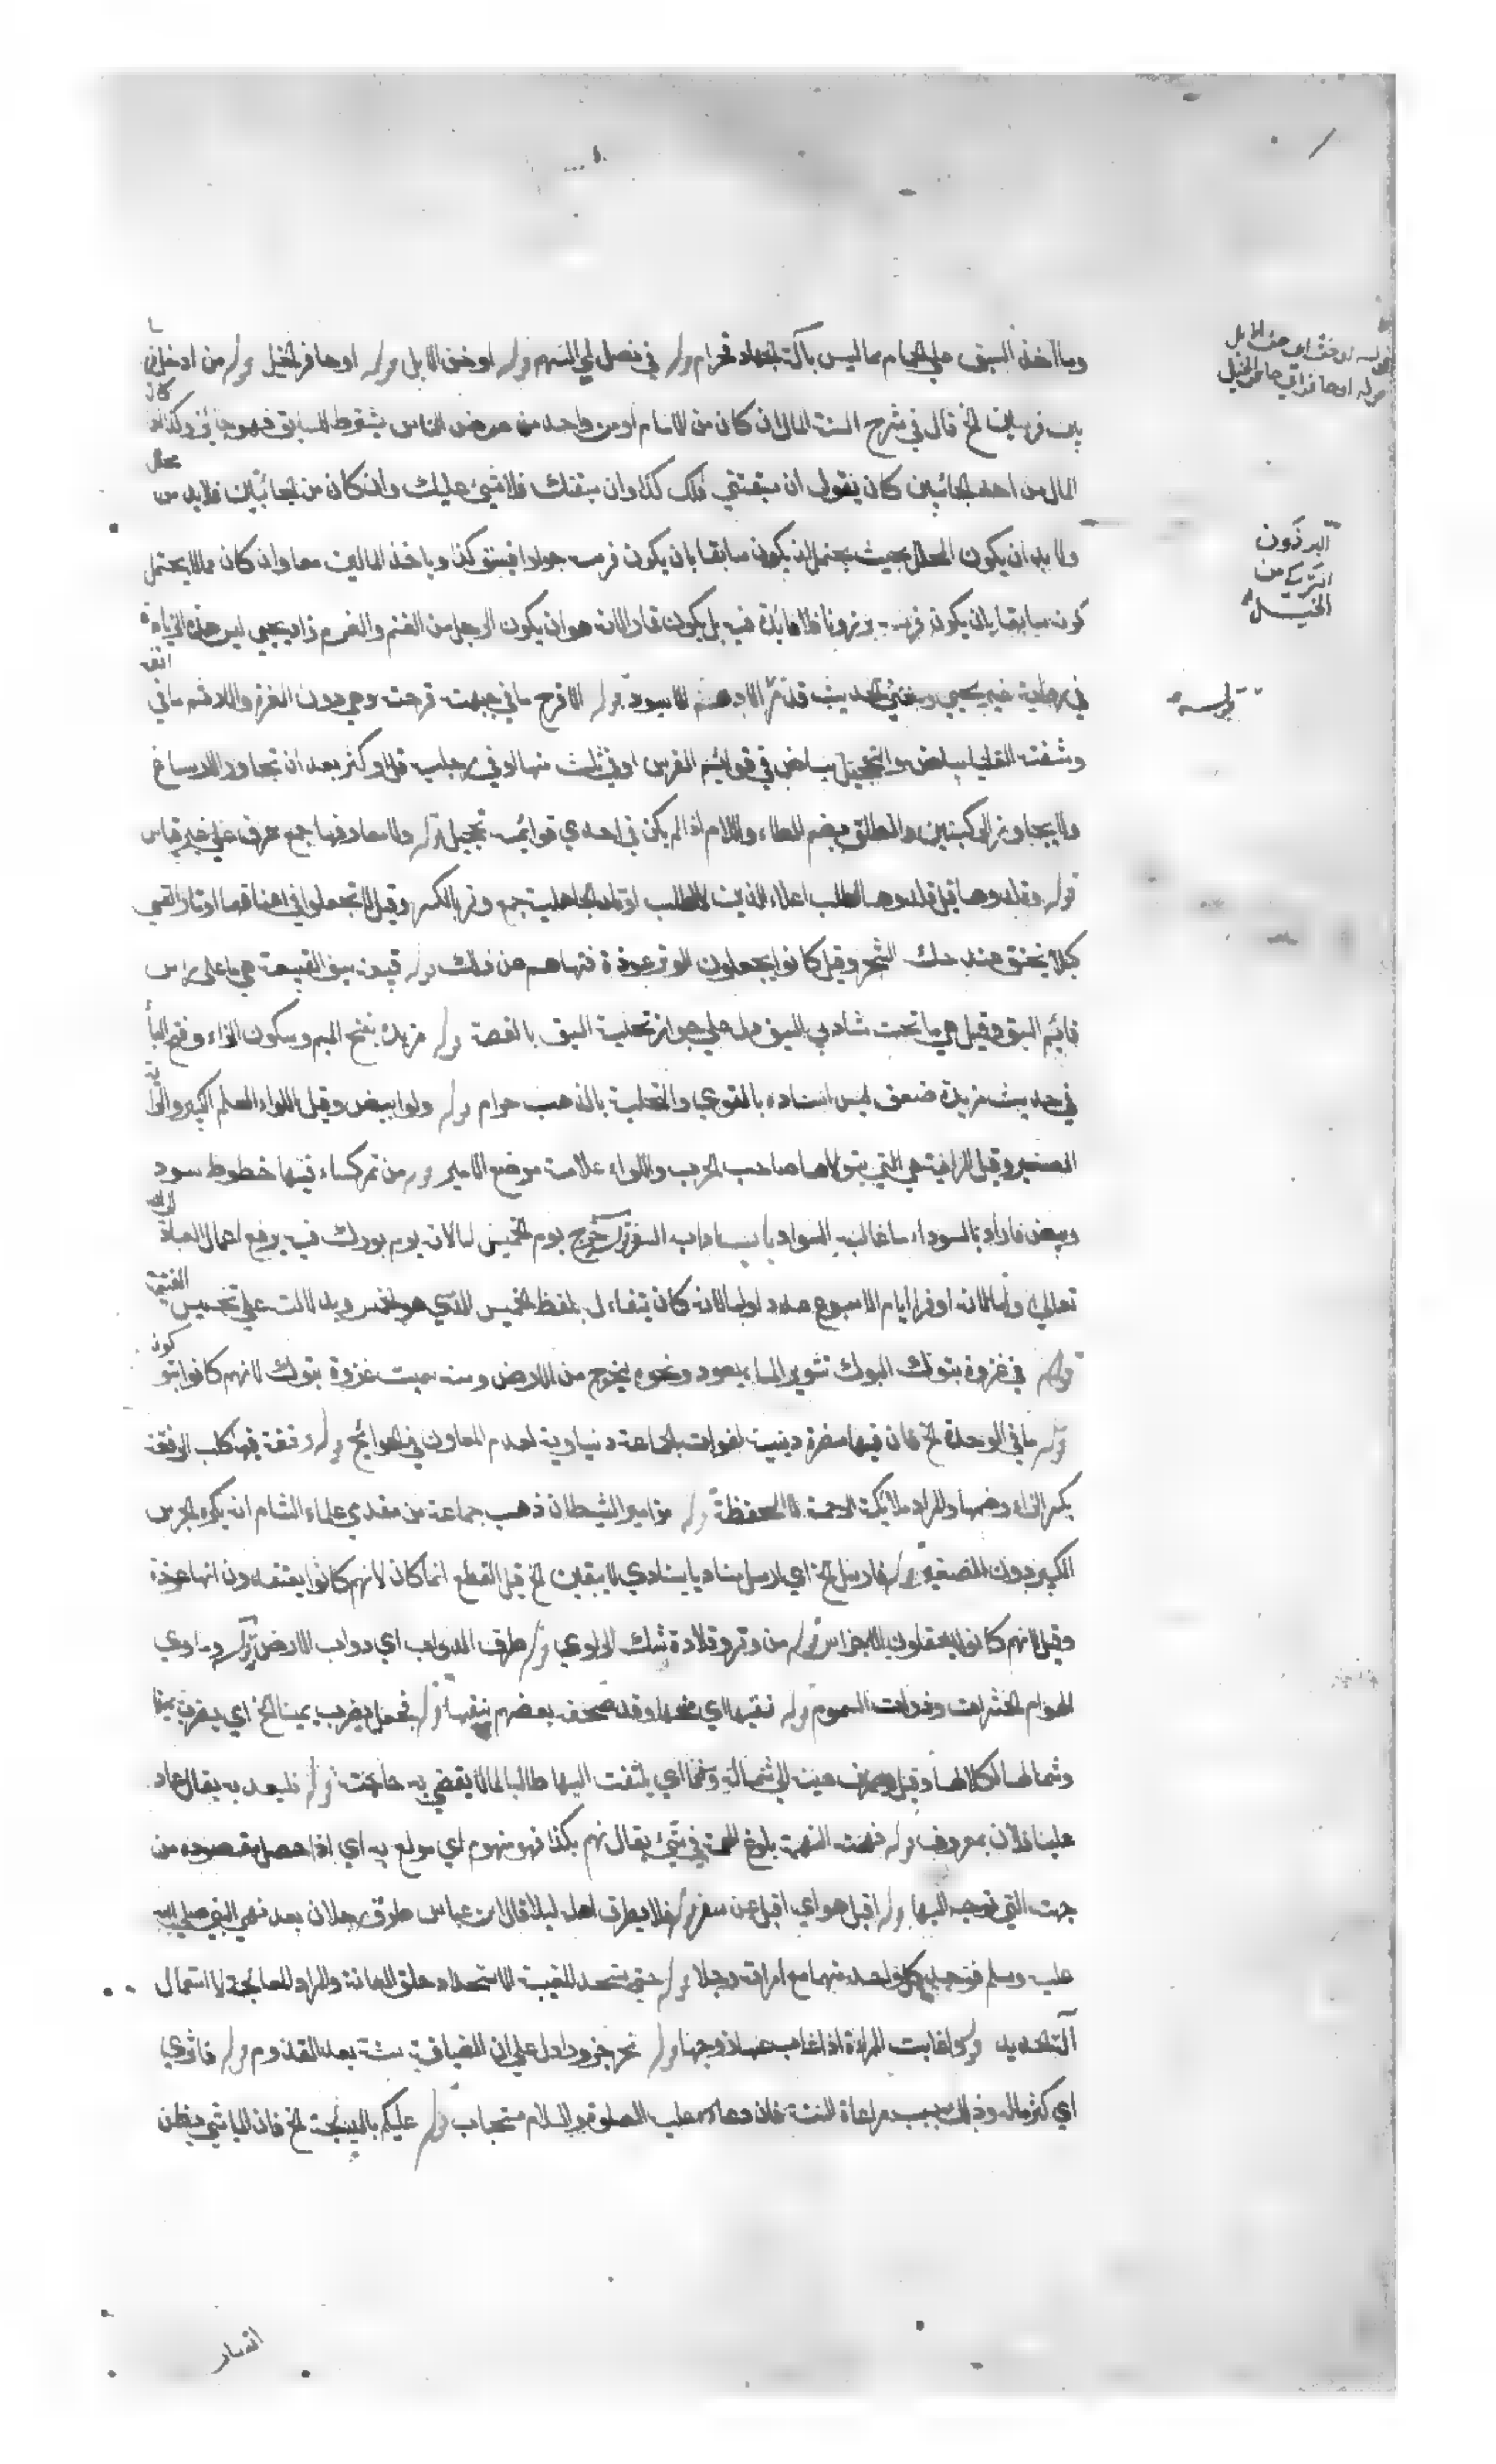 وما اخذ السبق على الحمام مما ليس بآلة الجهاد فحرام قوله في نصل اي السهم قوله او خف الابل قوله او حافر الخيل قوله من ادخل فرسا
بين فرسين الخ قال في شرح السنة المال ان كان من الامام او من واحد من عرض الناس بشرط للسابق فهو جائز وكذا ان كان
المال من احد الجانبين كان يقول ان سبقتني فلك كذا وان سبقتك فلا شيئ عليك وان كان من الجانبين فلا بد من محلل
ولا بد ان يكون المحلل بحيث يحتمل ان يكون سابقا بان يكون فرسه جوادا فيسبق كذا وياخذ المالين معا وان كان مما لا يحتمل
كونه سابقا بان يكون فرسه برذونا فلا فائدة فيه بل يكون قمارا لانه هو ان يكون الرجل من الغنم والغرم زاد يحيى ليس هذه الزيادة
في رواية غير يحيى ومعنى الحديث قد مر الادهم الاسود قوله الاقرح ما في جبهته قرحة وهي دون الغرة والارثم ما في انفه
وشفته العليا بياض والتحجيل بياض في قوائم الفرس او في ثلث منها او في رجليه قل او كثر بعد ان تجاوز الارساغ
ولا يجاوز الركبتين والطلق بضم الطاء واللام اذا لم يكن في احدى قوائمه تحجيل قوله ولا معارفها جمع عرف على غير قياس
قوله وقلدوها قيل قلدوها طلب اعلاء الدين لا طلب اوتار الجاهلية جمع وتر بالكسر وقيل لا تجعلوا في اعناقها اوتار القسي
كيلا يختنق عند حك الشجر وقيل كانوا يجعلون الوتر عوذة فنهاهم عن ذلك قوله قبيعة سيف القبيعة هي ما على راس
قائم السيف وقيل هي ما تحت شاربي السيف دل على جواز تحلية السيف بالفضة قوله مزيدة بفتح الميم وسكون الزاء وفتح الياء
في حديث مزيدة ضعف ليس اسناده بالقوي والتحلية بالذهب حرام قوله ولوا ابيض وقيل اللواء العلم الكبير والراية
الصغير وقيل الراية هي التي يتولاها صاحب الحرب واللواء علامة موضع الامير قوله من نمر كساء فيها خطوط سود
وبيض فاراد بالسوداء ما غالبه السواد باب اداب السفر قوله خرج يوم الخميس اما لانه يوم بورك فيه يرفع اعمال العباد الى الله
تعالى واما لانه اوفر ايام الاسبوع عددا واما لانه كان يتفاءل بلفظ الخميس الذي هو الخمس ويدل لالت على تخميس الغنيمة
قوله في غزوة تبوك البوك تثوير الماء بعود ونحوه ليخرج من الارض ومنه سميت غزوة تبوك لانهم كانوا يبوكون
قوله ما في الوحدة الخ فان فيها مضرة دينية لفوات الجماعة دنياوية لعدم المعاون في الحوائج قوله رفقة فيها كلب الرفقة
بكسر الراء وضمها والمراد ملائكة الرحمة لا الحفظة قوله مزامير الشيطان ذهب جماعة من متقدمي علماء الشام انه يكره الجرس
الكبير دون الصغير قوله فارسل الخ اي ارسل مناديا ينادي لا يبقين الخ قيل القطع انما كان لانهم كانوا يعتقدون انها عوذة
وقيل لانهم كانوا يعلقون الاجراس قوله من وتر او قلادة شك الراوي قوله طرق الدواب اي دواب الارض قوله وماوى
الهوام الحشرات وذوات السموم قوله نقيها اي مخها وقد صحف بعضهم بنقبها قوله فجعل يضرب يمينا الخ اي يضرب يمينا
وشمالا لكلالها وقيل يصرف عينه الى شماله ويمينه اي يلتفت اليها طالبا لما يقضي به حاجته قوله فليعد به يقال عاد
علينا فلان بمعروف قوله نهمته النهمة بلوغ الهمة في شيئ يقال نهم بكذا فهو منهوم اي مولع به اي اذا حصل مقصوده من
جهته التي توجه اليها قوله اقبل هو اي اقبل عن سفر قوله فلا يطرق اهله ليلا قال ابن عباس طرق رجلان بعد نهي النبي صلى الله
عليه وسلم فوجد كل واحد منهما مع امراته رجلا قوله حتى تستحد المغيبة الاستحداد حلق العانة والمراد المعالجة لا استعمال
آلة الحديد قوله اغابت المراة اذا غاب عنها زوجها قوله نحر جزورا دل على ان الضيافة سنة بعد القدوم قوله فاثرى
اي كثر ماله وذلك بسبب مراعاة السنة فان دعاءه عليه الصلوة والسلام مستجاب قوله عليكم بالدلجة الخ فان الماشي يظن
قوله او خف اي خف ابل
قوله او حافر اي حافر الخيل
البرذون
التركي من
الخيل
قوله